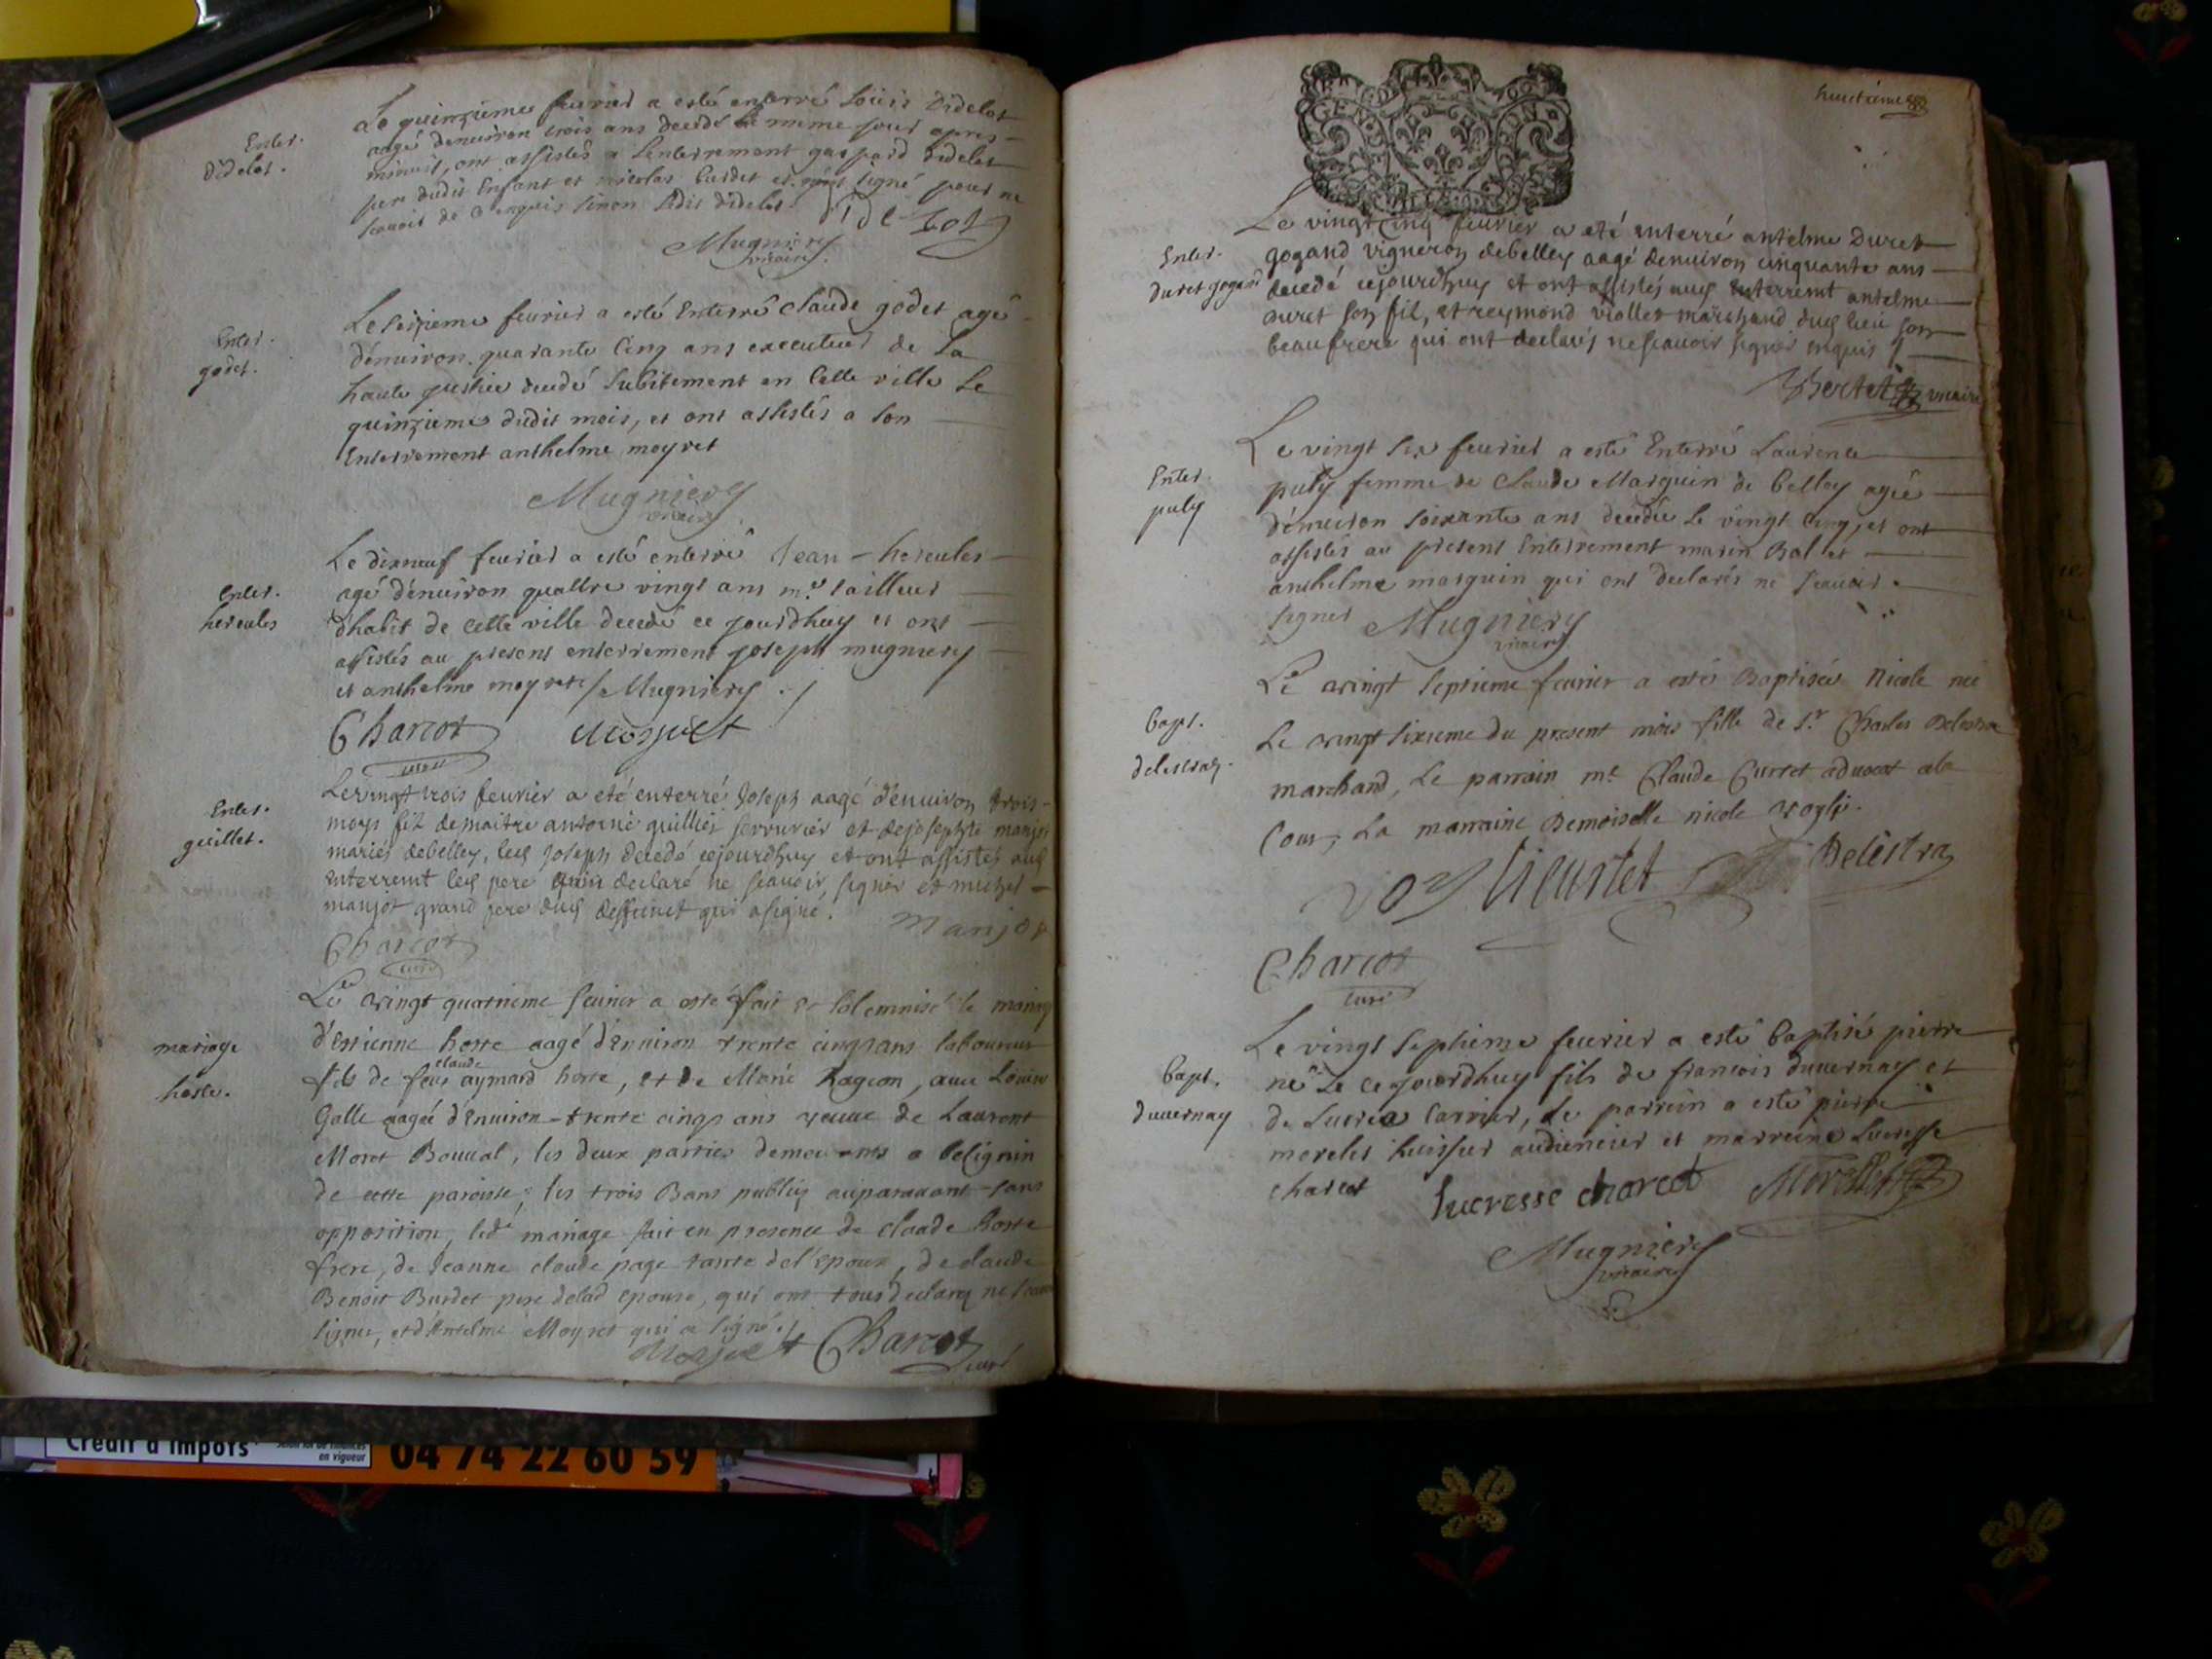 Enter.
didelot.
Le quinzieme feurier a esté enterré Loüis Didelot
aagé denuiron trois ans decedé le meme jour apres
minuit, ont assistés a Lenterrement gaspard didelot
pere dudit Enfant et nicolas burdet et. n'ont signé pour ne
scauoir de ce enquis sinon ledit didelot.
didelot
Mugniery
vicaire
Enter.
godet.
Le seizieme feurier a esté Enterré claude godet agé
d'enuiron quarante Cinq ans executeur de La
haute justice decedé subitement en Cette ville Le
quinzieme dudit mois, et ont assistés a son
Enterrement anthelme moyret
Mugniery
vicaire
Enter.
hercules
Le dixneuf feurier a esté enterré Jean-hercules
agé d'enuiron quattre vingt ans mr. tailleur
d'habit de cette ville decedé ce jourdhuy et ont
assistés au present enterrement joseph mugniery
et anthelme moyret / Mugniery
Charcot
curé
Moyret
Enter.
guillet.
Le vingt trois feurier a eté enterré Joseph aagé d'enuiron trois
moys fil de maitre antoine guillet serrurier et de josephte manjot
mariés debelley, led Joseph decedé cejourdhuy et ont assistés aud
enterremt led pere qui a declaré ne scauoir signer et michel
manjot grand pere dud deffunct qui a signé.
manjot
Charcot
curé
mariage
hoste.
Le vingt quatrieme feurier a esté fait et solemnisé le mariage
d'estienne hoste aagé d'enuiron trente cinq ans laboureur
claude
fils de feu aymard hoste, et de Marie Rageon, auec Louise
Galle aagée d'enuiron trente cinq ans veuue de Laurent
Moret Bouual, les deux parties demeurants a belignin
de cette paroisse; les trois Bans publiés auparauant sans
opposition, led mariage fait en presence de claude hoste
frere, de Jeanne claude page tante de l'epoux, de claude
Benoit Burdet pere de lad epouse, qui ont tous declaré ne scauoir
signer, et d'Antelme Moyret qui a signé.
Moyret Charcot
curé
huictieme
GEN. D ON.
Enter.
duret gogand
Le vingt cinq feurier a eté enterré antelme Duret
gogand vigneron debelley aagé denuiron cinquante ans
decedé cejourdhuy et ont assistés aud enterremt antelme
duret son fil, et reymond viollet marchand dud lieu son
beaufrere qui ont declarés ne scauoir signer enquis /
Bertet vicaire
Enter.
puly
Le vingt six feurier a esté Enterré Laurence
puly femme de Claude Marquin de belley agée
d'enuiron soixante ans decedée Le vingt Cinq, et ont
assistés au present Enterrement marin Bal et
anthelme marquin qui ont declarés ne scauoir.
signer Mugniery
vicaire
bapt.
delestraz.
Le vingt septieme feurier a esté Baptisée Nicole née
Le vingt sixieme du present mois fille de Sr Charles Delestra
marchand, Le parrain mre Claude Curtet aduocat a la
Cour, La marraine Demoiselle nicole
Curtet Delestraz
Charcot
curé
bapt.
duuernay
Le vingt septieme feurier a esté baptisé pierre
né Le cejourdhuy fils de francois duuernay et
de Lucrece Carrier, Le parrein a esté pierre
morelet huissier audiencier et marreine Lucresse
charcot
Lucresse charcot Morellet
Mugniery
vicaire
Crédit d'impôts
en vigueur
04 74 22 60 59